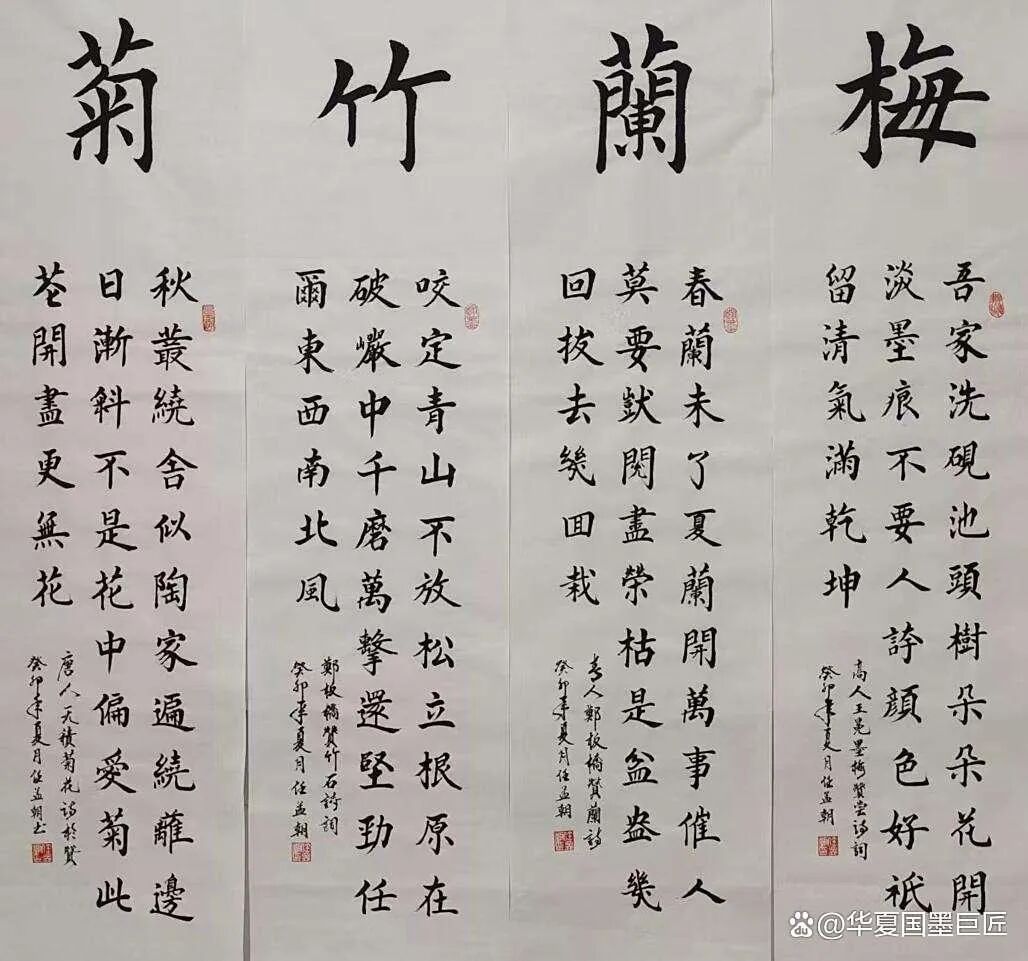 梅
吾家洗硯池頭樹朵朵花開
淡墨痕不要人誇顏色好祇
留清氣滿乾坤
高人王冕墨梅贊
癸卯年夏月任益朝
蘭
春蘭未了夏蘭開萬事催人
莫要獃閱盡榮枯是盆盎幾
回拔去幾囬栽
清人鄭板橋贊蘭詩
癸卯年夏月任益朝
竹
咬定青山不放松立根原在
破巖中千磨萬擊還堅勁任
爾東西南北風
鄭板橋贊竹石詩詞
癸卯年夏月任益朝
菊
秋叢繞舍似陶家遍繞離邊
日漸斜不是花中偏愛菊此
花開盡更無花
唐人元積菊花詩
癸卯年夏月任益朝书
@华夏国墨巨匠